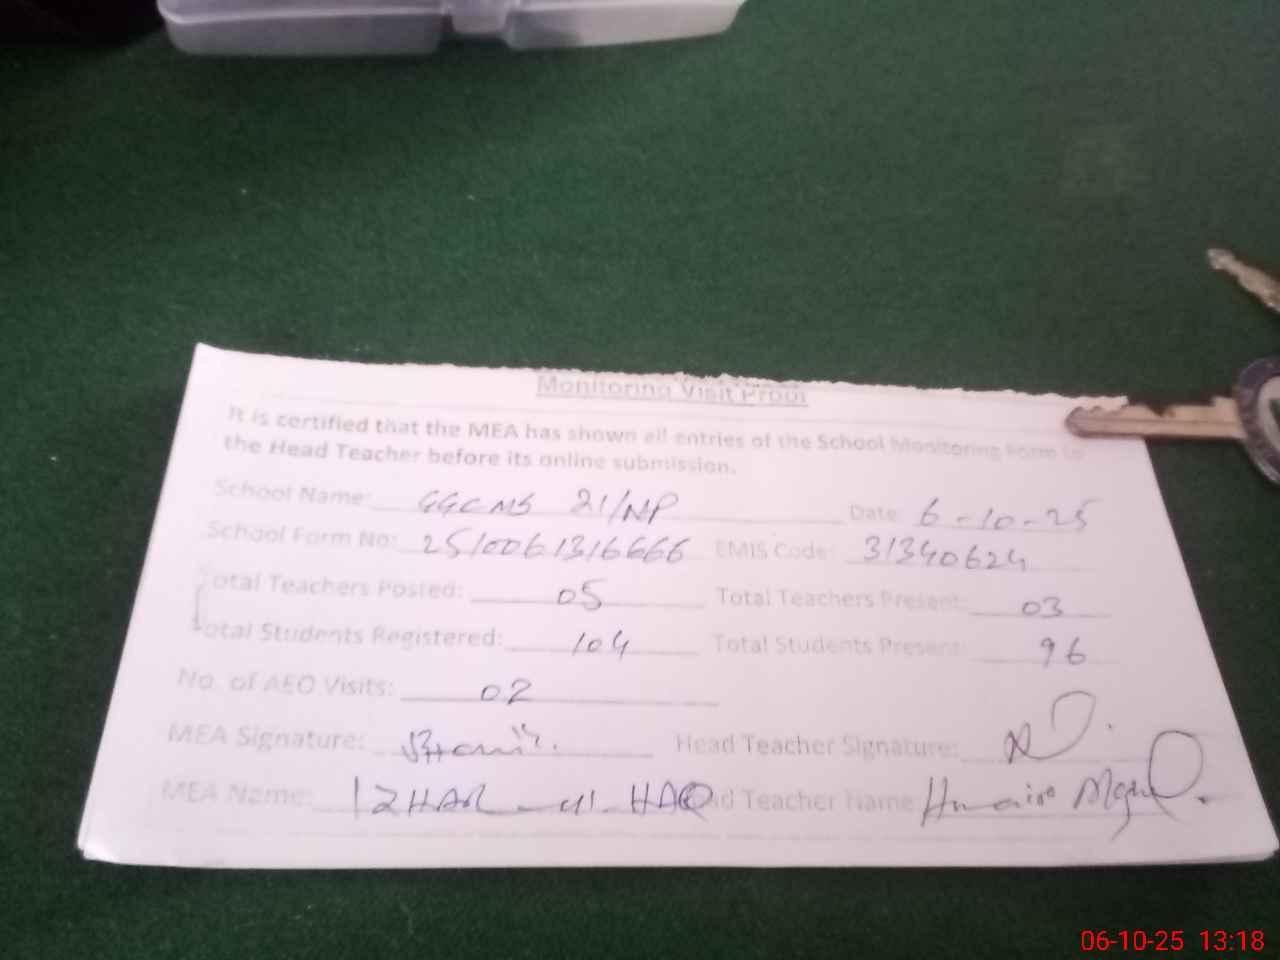 Monitoring Visit Proof
It is certified that the MEA has shown all entries of the School Monitoring Form to
the Head Teacher before its online submission.
School Name: GGCMS 21/NP Date: 6-10-25
School Form No: 2510061316666 EMIS Code: 31340624
Total Teachers Posted: 05 Total Teachers Present: 03
Total Students Registered: 104 Total Students Present: 96
No. of AEO Visits: 02
MEA Signature: Head Teacher Signature:
MEA Name: IZHAR-ul-HAQ Head Teacher Name Humaira
06-10-25 13:18